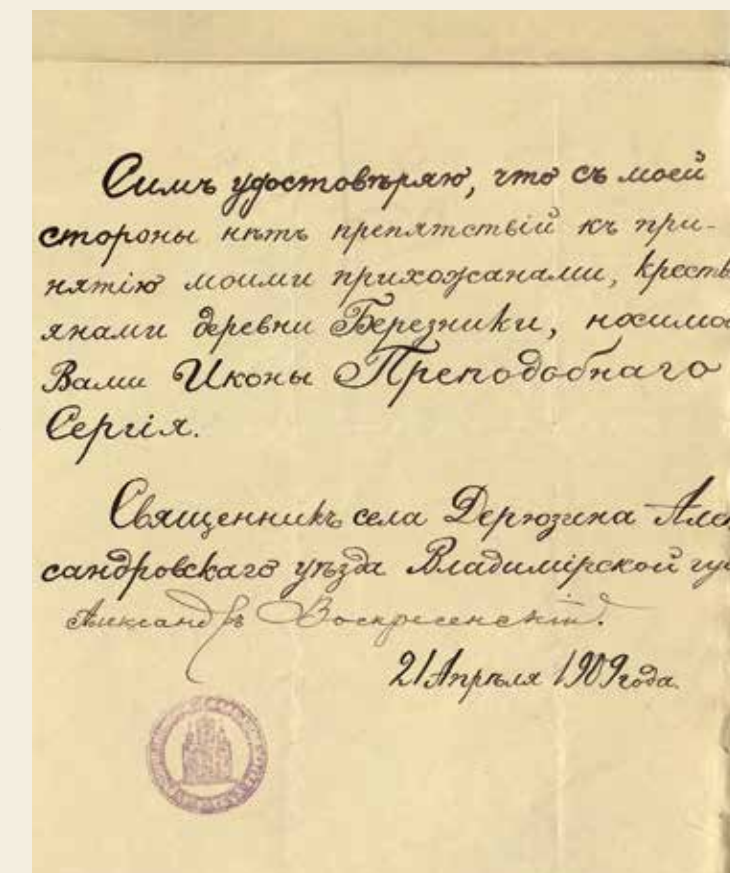 Симъ удостовѣряю, что съ моей
стороны нѣтъ препятствій къ при-
нятію моими прихожанами, кресть
янами деревни Березники, носимо
Вами Иконы Преподобнаго
Сергія.
Священникъ села Дерюзина Алек
сандровскаго уѣзда Владимірской гу
Александръ Воскресенскій.
21 Апрѣля 1909 года.